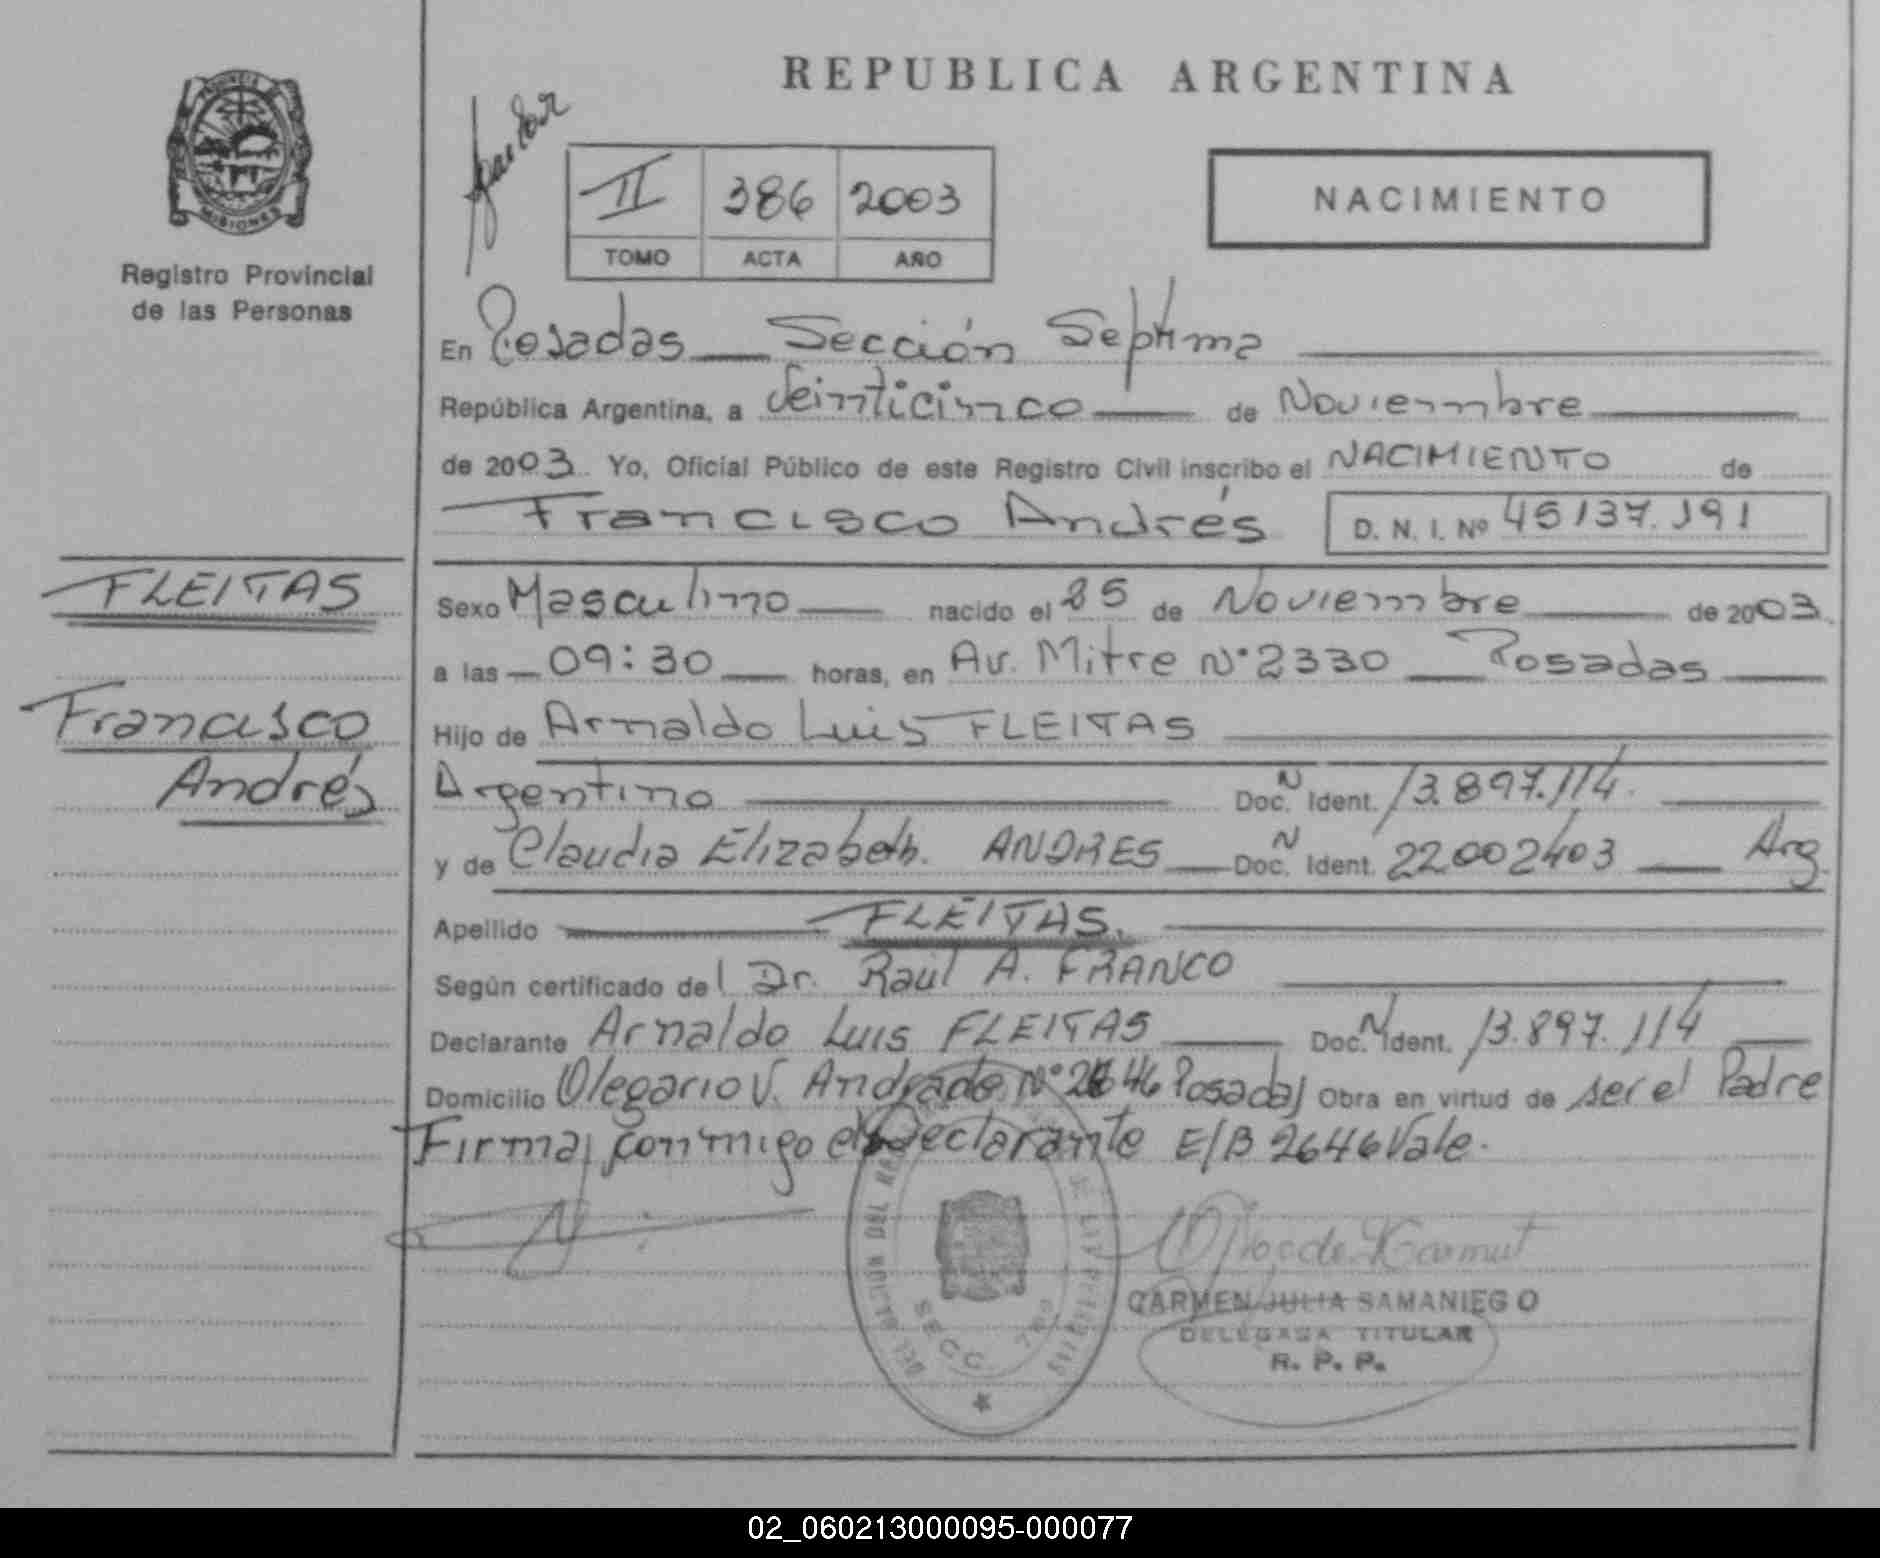 REPUBLICA ARGENTINA
PROVINCIA DE
MISIONES
Registro Provincial
de las Personas
II 386 2003
TOMO ACTA AÑO
NACIMIENTO
En Posadas Sección Septima
República Argentina, a Veinticinco de Noviembre
de 2003 Yo, Oficial Público de este Registro Civil inscribo el NACIMIENTO de
Francisco Andrés D. N. I. Nº 45137.191
FLEITAS
Francisco
Andrés
Sexo Masculino nacido el 25 de Noviembre de 2003
a las 09:30 horas, en Av. Mitre N° 2330 Posadas
Hijo de Arnaldo Luis FLEITAS
Argentino Doc. N Ident. 13.897.114
y de Claudia Elizabeth. ANDRES Doc. N Ident. 22002403 Arg
Apellido FLEITAS.
Según certificado del Dr. Raúl A. FRANCO
Declarante Arnaldo Luis FLEITAS Doc. N Ident. 13.897.114
Domicilio Olegario V. Andrade N° 2646 Posadas Obra en virtud de ser el Padre
Firma conmigo el Declarante E/B 2646 Vale.
SECC. 7ma
CARMEN JULIA SAMANIEGO
DELEGADA TITULAR
R. P. P.
02_060213000095-000077